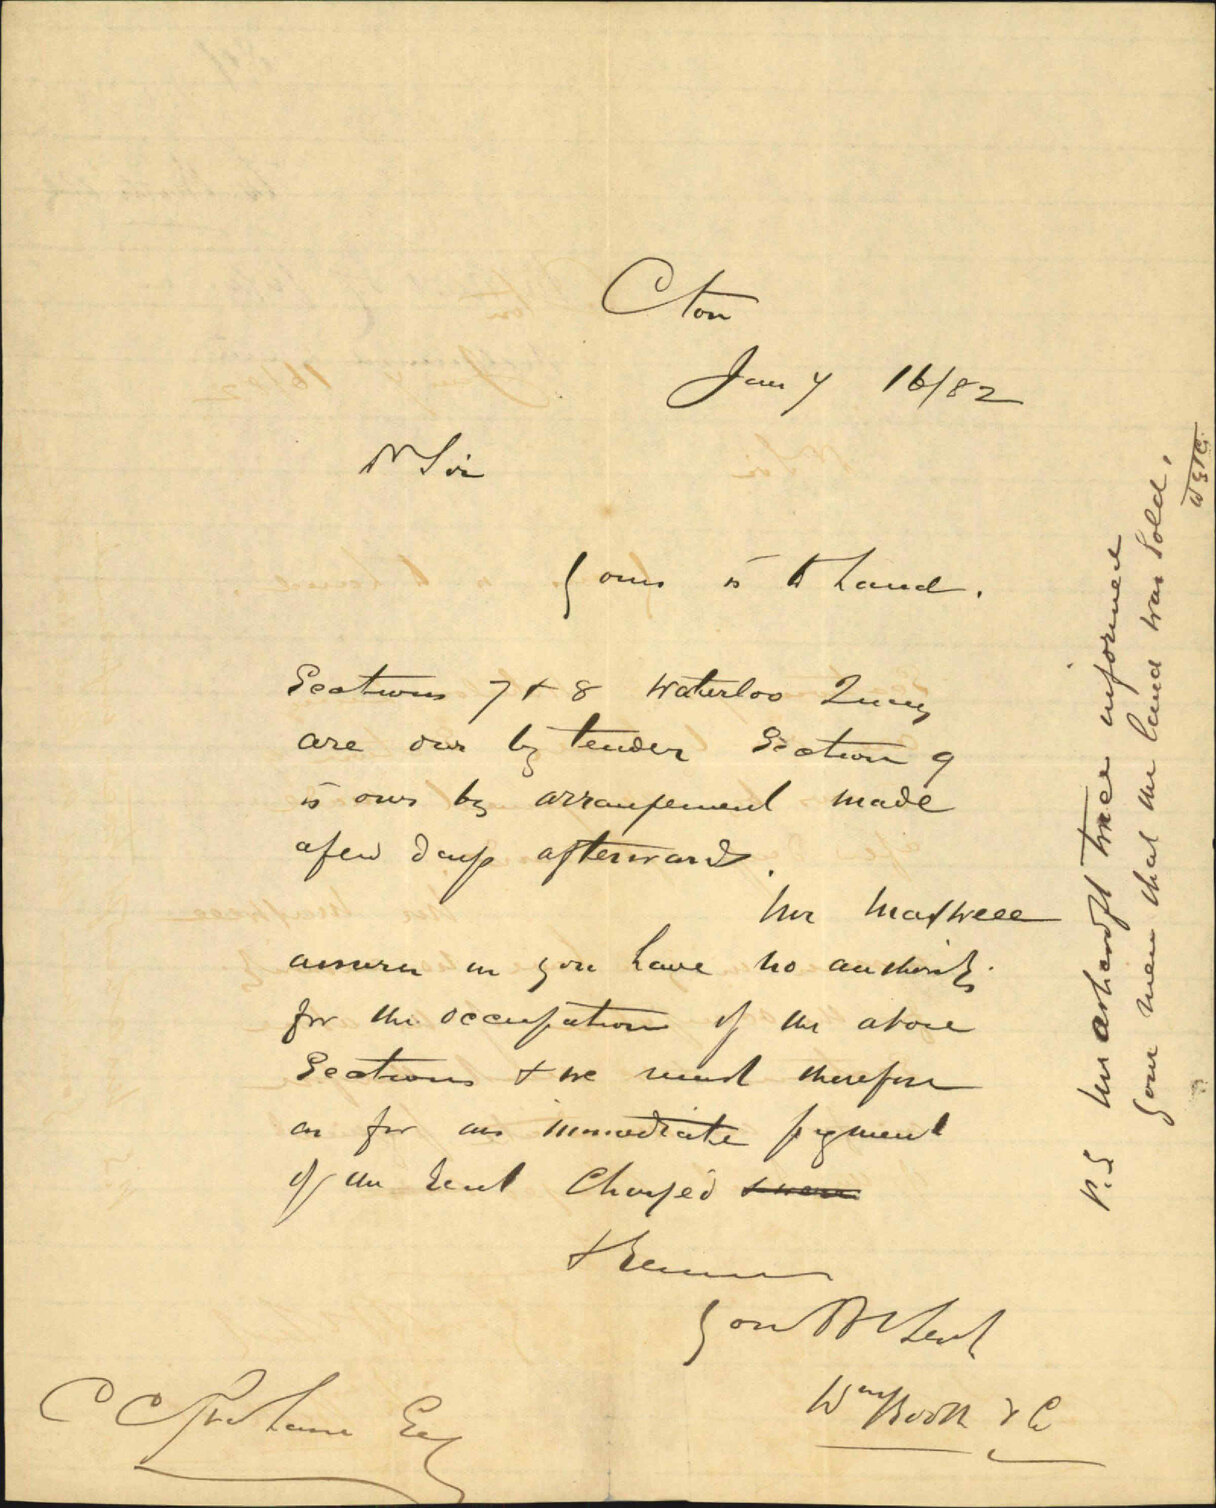 Cton
Jany 16/82
D Sir
Yours is to hand.
Sections 7 & 8 Waterloo Quay
are ours by tender Section 9
is ours by arrangement made
a few days afterwards.
Mr Maxwell
assures us you have no authority
for the occupation of the above
Sections & we must therefore
as for an immediate payment
of the Rent Charged
& Remain
Your Ob Servt
Wm Booth & Co
C C Graham Esq
P.S Mr Ashcroft twice informed
your men that the land was sold.
WB&Co